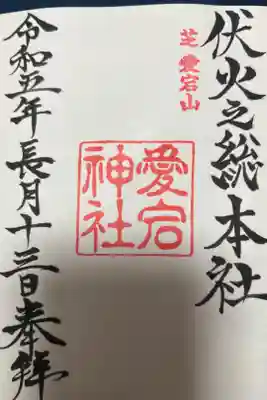 伏火之総本社
芝 愛宕山
愛宕
神社
令和五年長月十三日奉拝